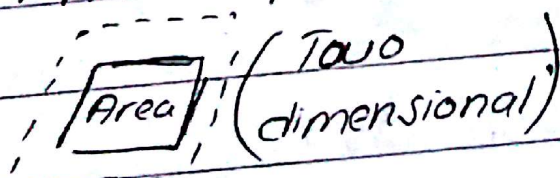 Area
(Tawo
dimensional)